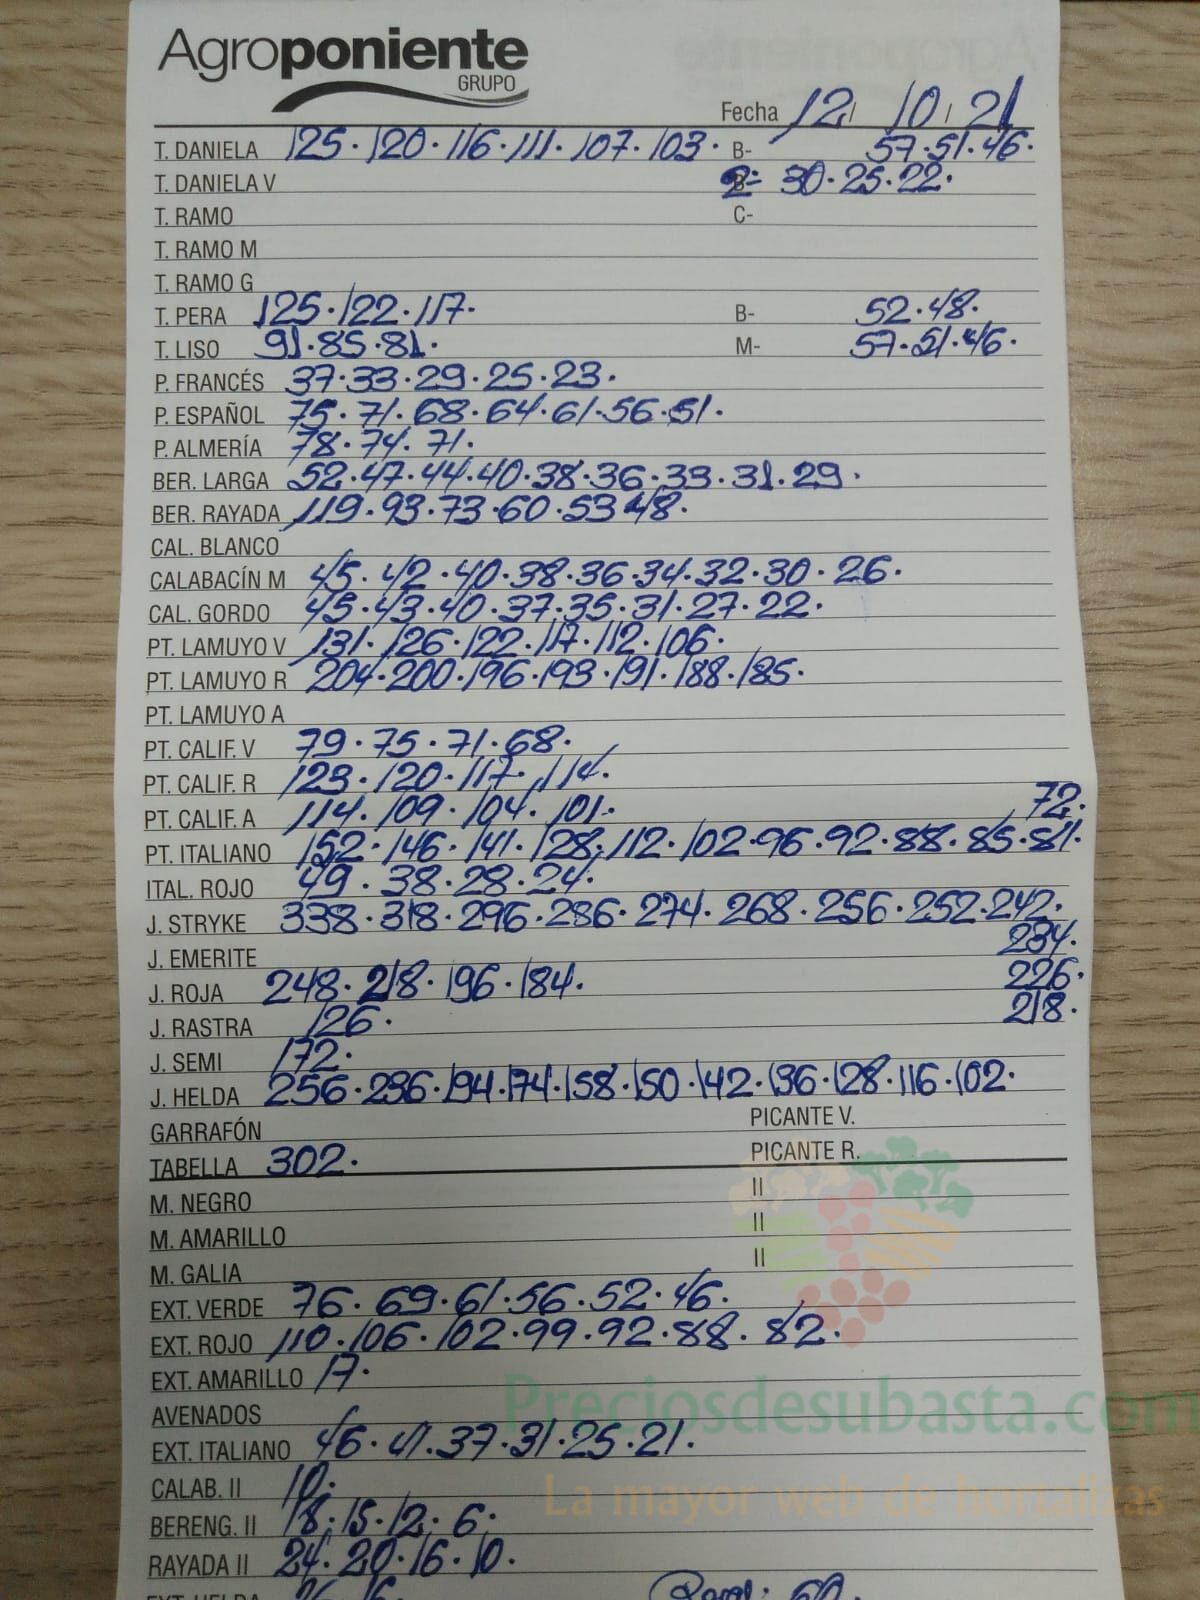 Agroponiente
GRUPO
Fecha 12 / 10 / 21
T. DANIELA 125 · 120 · 116 · 111 · 107 · 103 · B- 57 · 51 · 46 ·
T. DANIELA V 2- 30 · 25 · 22 ·
T. RAMO C-
T. RAMO M
T. RAMO G
T. PERA 125 · 122 · 117 · B- 52 · 48 ·
T. LISO 91 · 85 · 81 · M- 57 · 51 · 46 ·
P. FRANCÉS 37 · 33 · 29 · 25 · 23 ·
P. ESPAÑOL 75 · 71 · 68 · 64 · 61 · 56 · 51 ·
P. ALMERÍA 78 · 74 · 71 ·
BER. LARGA 52 · 47 · 44 · 40 · 38 · 36 · 33 · 31 · 29 ·
BER. RAYADA 119 · 93 · 73 · 60 · 53 48 ·
CAL. BLANCO
CALABACÍN M 45 · 42 · 40 · 38 · 36 · 34 · 32 · 30 · 26 ·
CAL. GORDO 45 · 43 · 40 · 37 · 35 · 31 · 27 · 22 ·
PT. LAMUYO V 131 · 126 · 122 · 117 · 112 · 106 ·
PT. LAMUYO R 204 · 200 · 196 · 193 · 191 · 188 · 185 ·
PT. LAMUYO A
PT. CALIF. V 79 · 75 · 71 · 68 ·
PT. CALIF. R 123 · 120 · 117 · 114 ·
PT. CALIF. A 114 · 109 · 104 · 101 · 72 ·
PT. ITALIANO 152 · 146 · 141 · 128 · 112 · 102 · 96 · 92 · 88 · 85 · 81 ·
ITAL. ROJO 49 · 38 · 28 · 24 ·
J. STRYKE 338 · 318 · 296 · 286 · 274 · 268 · 256 · 252 · 242 ·
J. EMERITE 234 ·
J. ROJA 248 · 218 · 196 · 184 · 226 ·
J. RASTRA 126 · 218 ·
J. SEMI 172 ·
J. HELDA 256 · 236 · 194 · 174 · 158 · 150 · 142 · 136 · 128 · 116 · 102 ·
GARRAFÓN PICANTE V.
TABELLA 302 · PICANTE R.
M. NEGRO II
M. AMARILLO II
M. GALIA II
EXT. VERDE 76 · 69 · 61 · 56 · 52 · 46 ·
EXT. ROJO 110 · 106 · 102 · 99 · 92 · 88 · 82 ·
EXT. AMARILLO 17 ·
Preciosdesubasta.com
AVENADOS
EXT. ITALIANO 46 · 41 · 37 · 31 · 25 · 21 ·
CALAB. II 10 ·
La mayor web de hortalizas
BERENG. II 18 · 15 · 12 · 6 ·
RAYADA II 24 · 20 · 16 · 10 ·
EXT. HELDA